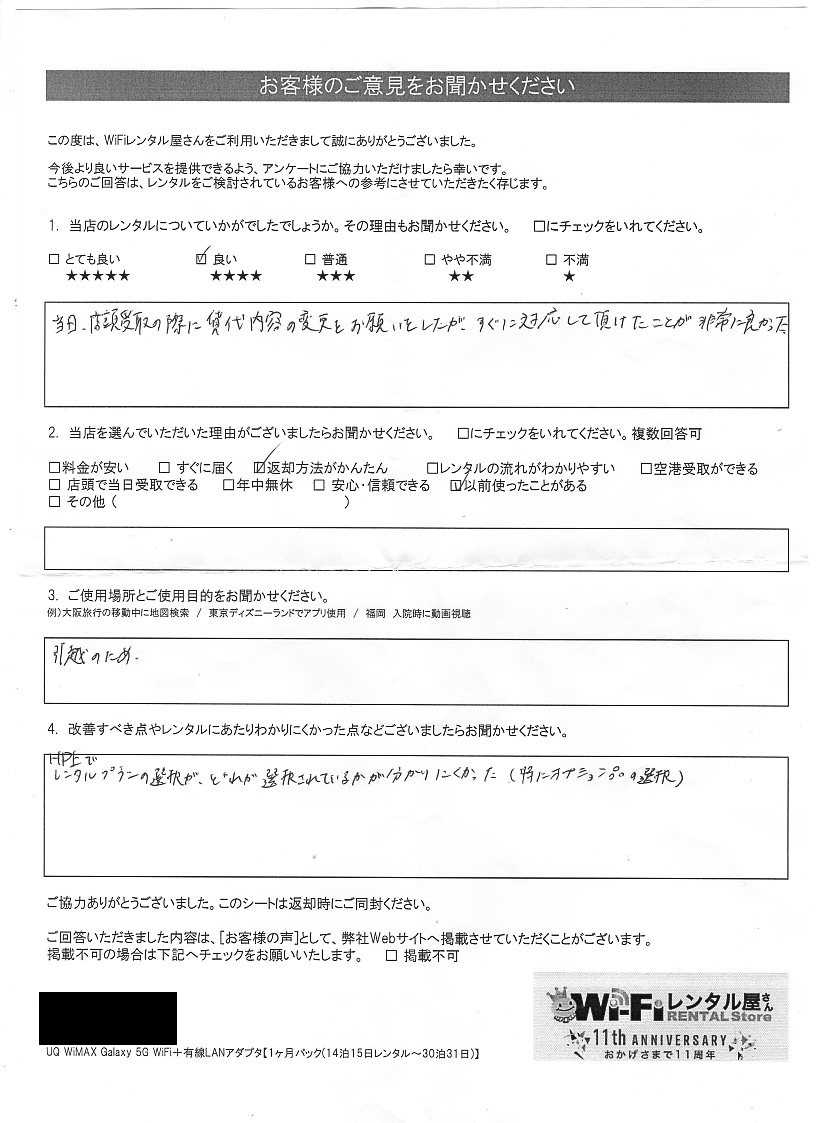 お客様のご意見をお聞かせください
この度は、WiFiレンタル屋さんをご利用いただきまして誠にありがとうございました。
今後より良いサービスを提供できるよう、アンケートにご協力いただけましたら幸いです。
こちらのご回答は、レンタルをご検討されているお客様への参考にさせていただきたく存じます。
1. 当店のレンタルについていかがでしたでしょうか。その理由もお聞かせください。 □にチェックをいれてください。
□ とても良い ☑ 良い □ 普通 □ やや不満 □ 不満
★★★★★ ★★★★ ★★★ ★★ ★
当日、店頭受取の際に貸代内容の変更をお願いをしたが、すぐに対応して頂けたことが非常に良かった
2. 当店を選んでいただいた理由がございましたらお聞かせください。 □にチェックをいれてください。複数回答可
□料金が安い □ すぐに届く ☑返却方法がかんたん □レンタルの流れがわかりやすい □空港受取ができる
□ 店頭で当日受取できる □年中無休 □ 安心・信頼できる ☑以前使ったことがある
□ その他 ( )
3. ご使用場所とご使用目的をお聞かせください。
例)大阪旅行の移動中に地図検索 / 東京ディズニーランドでアプリ使用 / 福岡 入院時に動画視聴
引越のため.
4. 改善すべき点やレンタルにあたりわかりにくかった点などございましたらお聞かせください。
HP上で
レンタルプランの選択が、どれが選択されているかが分かりにくかった (特にオプション品の選択)
ご協力ありがとうございました。このシートは返却時にご同封ください。
ご回答いただきました内容は、[お客様の声]として、弊社Webサイトへ掲載させていただくことがございます。
掲載不可の場合は下記へチェックをお願いいたします。 □ 掲載不可
Wi-Fiレンタル屋さん
RENTAL Store
11th ANNIVERSARY
おかげさまで11周年
UQ WiMAX Galaxy 5G WiFi＋有線LANアダプタ【1ヶ月パック(14泊15日レンタル～30泊31日)】